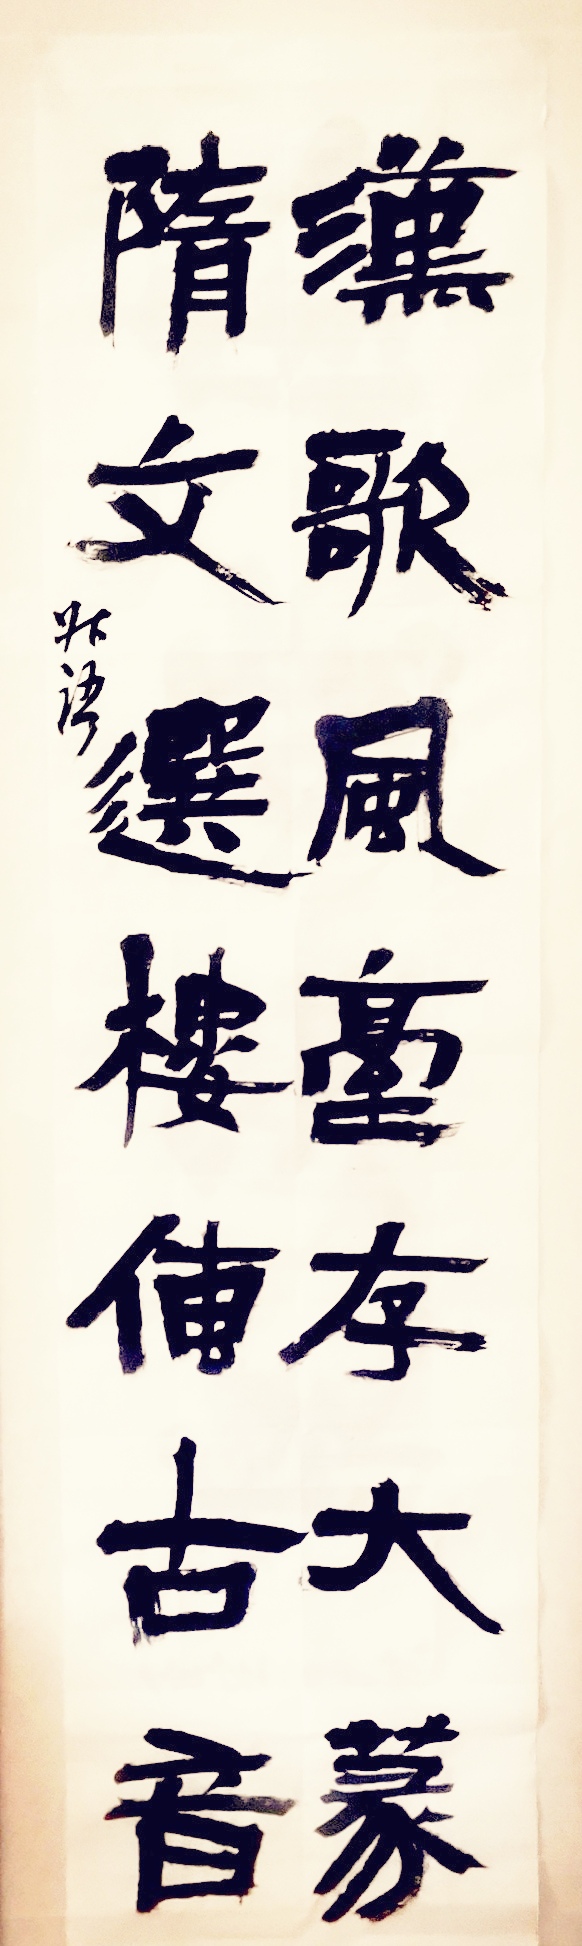 漢歌風臺存大篆
隋文選樓傳古音